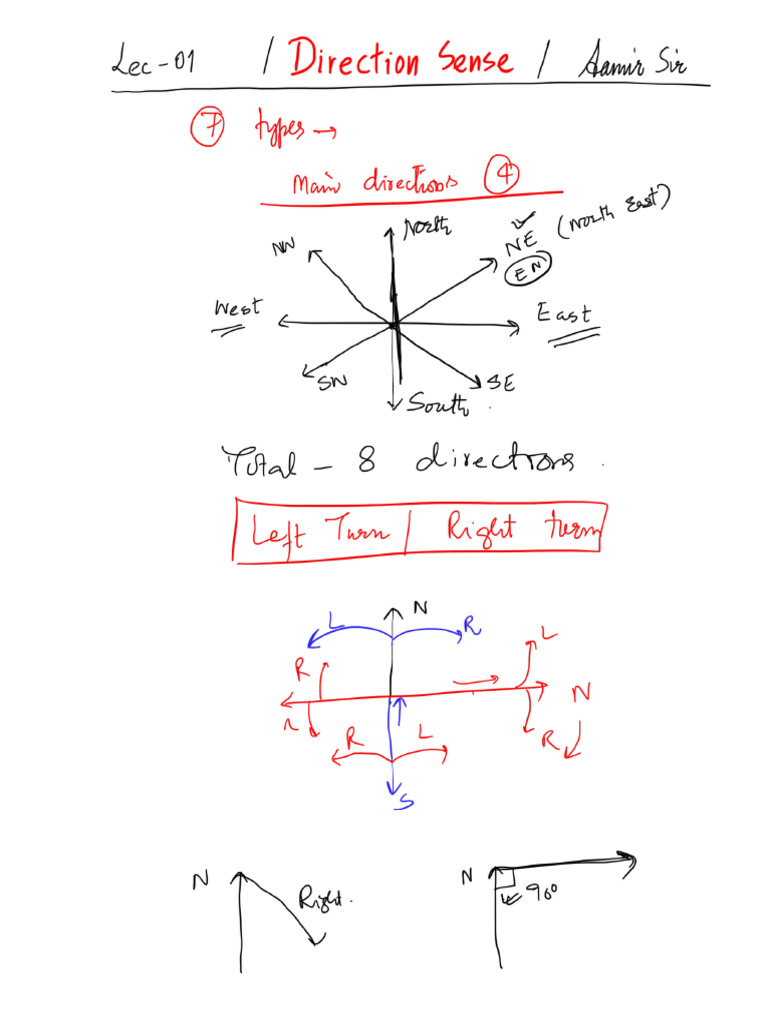 Lec-01 / Direction Sense / Aamir Sir
7 types →
Main directions 4
North
NW
NE (North East)
EN
West
East
SW
SE
South
Total - 8 directions.
Left Turn | Right turn
N
L
R
L
R
N
R
L
R
S
N
Right.
N
90°